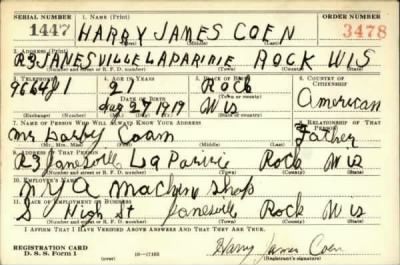 SERIAL NUMBER 1. NAME (Print) ORDER NUMBER
1447 HARRY JAMES COEN 3478
(First) (Middle) (Last)
2. ADDRESS (Print)
R3 JANESVILLE LAPARIRIE ROCK WIS
(Number and street or R. F. D. number) (Town) (County) (State)
3. TELEPHONE 4. AGE IN YEARS 5. PLACE OF BIRTH 6. COUNTRY OF CITIZENSHIP
9664J1 27 Rock
(Town or county)
DATE OF BIRTH
Aug 27 1919 Wis American
(Exchange) (Number) (Mo.) (Day) (Yr.) (State or country)
7. NAME OF PERSON WHO WILL ALWAYS KNOW YOUR ADDRESS 8. RELATIONSHIP OF THAT PERSON
Mr Harry Coen Father
(Mr., Mrs., Miss) (First) (Middle) (Last)
9. ADDRESS OF THAT PERSON
R3 Janesville La Pairie Rock Wis
(Number and street or R. F. D. number) (Town) (County) (State)
10. EMPLOYER'S NAME
N Y A Machine Shop
11. PLACE OF EMPLOYMENT OR BUSINESS
S High St Janesville Rock Wis
(Number and street or R. F. D. number) (Town) (County) (State)
I AFFIRM THAT I HAVE VERIFIED ABOVE ANSWERS AND THAT THEY ARE TRUE.
REGISTRATION CARD
D. S. S. Form 1 16—17105 Harry James Coen
(Registrant's signature)